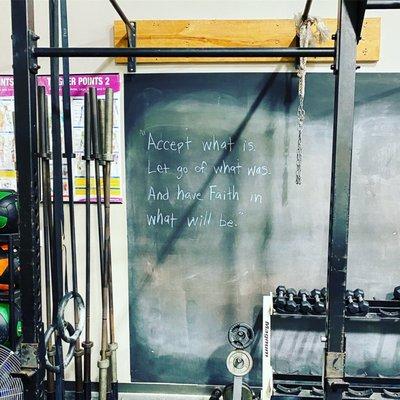 GER POINTS 2
"Accept what is.
Let go of what was.
And have Faith in
what will be."
Magnum